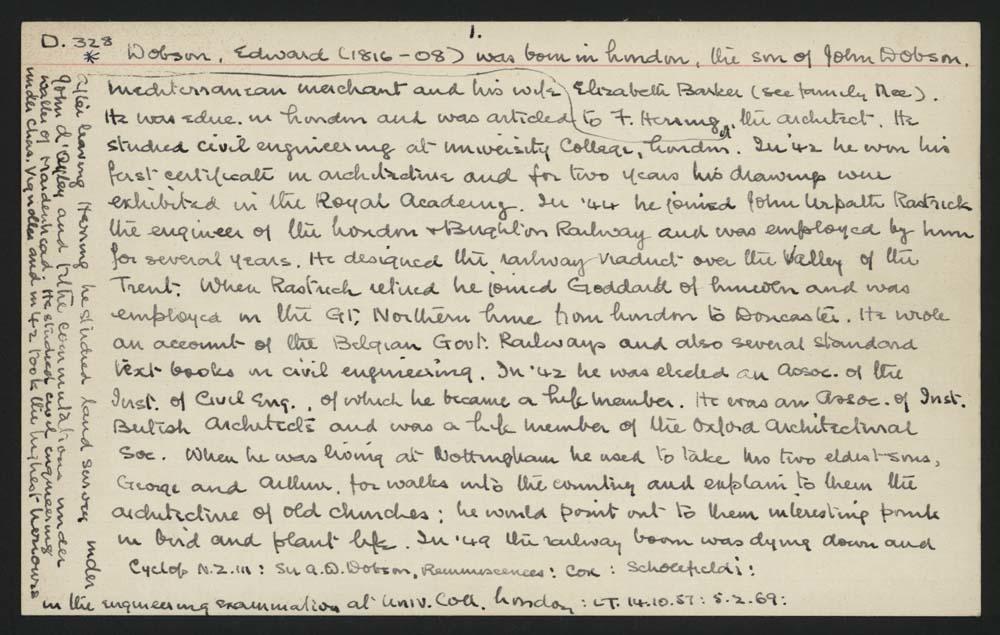 D. 328
1.
* Dobson, Edward (1816-08) was born in London, the son of John Dobson,
mediterranean merchant and his wife Elizabeth Barker (see family tree).
He was educ. in London and was articled to F. Herring, the architect. He
studied civil engineering at University College, London. In '42 he won his
first certificate in architecture and for two years his drawings were
exhibited in the Royal Academy. In '44 he joined John Urpath Rastrick
the engineer of the London & Brighton Railway and was employed by him
for several years. He designed the railway viaduct over the Valley of the
Trent. When Rastrick retired he joined Goddard of Lincoln and was
employed on the Gt. Northern line from London to Doncaster. He wrote
an account of the Belgian Govt. Railways and also several standard
text-books on civil engineering. In '42 he was elected an Assoc. of the
Inst. of Civil Eng., of which he became a life member. He was an Assoc. of Inst.
British Architects and was a life member of the Oxford Architectural
Soc. When he was living at Nottingham he used to take his two eldest sons,
George and Arthur, for walks into the country and explain to them the
architecture of old churches; he would point out to them interesting points
in bird and plant life. In '49 the railway boom was dying down and
Cyclop N.Z. III: Sir A.D. Dobson, Reminiscences: Cox: Scholefield i:
after leaving Herring he studied land survey under
John d'Oyley and tithe commutations under
Waller of Maidenhead. He studied civil engineering
under Chas. Vignolles and in 42 took the highest honours
in the engineering examination at Univ. Coll. London: LT. 14.10.57: 5.2.69: